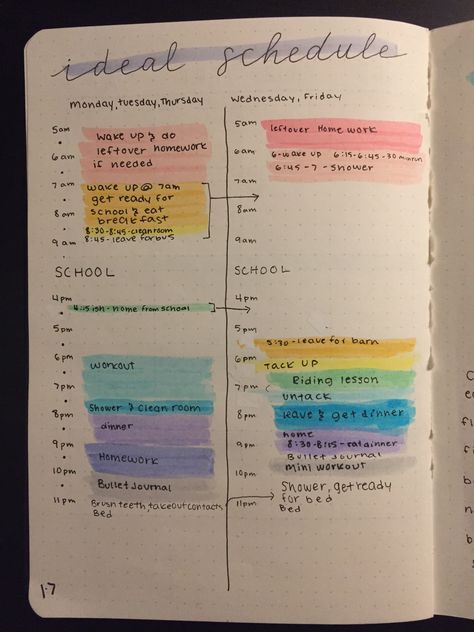 ideal schedule
monday, tuesday, Thursday
5am
wake up & do
leftover homework
6am
if needed
7am
wake up @ 7am
get ready for
8am
school & eat
breakfast
8:30-8:45-clean room
9am
8:45-leave for bus
SCHOOL
4pm
4:15ish-home from school
5pm
6pm
workout
7pm
Shower & clean room
8pm
dinner
9pm
Homework
10pm
Bullet Journal
11pm
Brush teeth, take out contacts
Bed
Wednesday, Friday
5am
leftover Home work
6am
6-wake up 6:15-6:45-30 min run
6:45-7-shower
7am
8am
9am
SCHOOL
4pm
5pm
5:30-leave for barn
6pm
TACK UP
Riding lesson
7pm
untack
8pm
leave & get dinner
home
9pm
8:30-8:45-eat dinner
Bullet Journal
10pm
mini workout
Shower, get ready
for bed
11pm
Bed
1.7